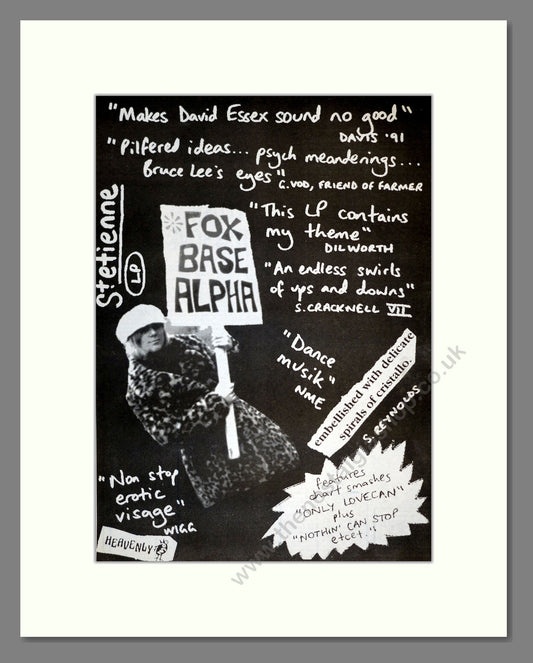 "Makes David Essex sound no good"
DAVIS '91
"Pilfered ideas... psych meanderings...
Bruce Lee's eyes"
C. VOD, FRIEND OF FARMER
Stetienne
LP
FOX
BASE
ALPHA
"This LP contains
my theme"
DILWORTH
"An endless swirls
of ups and downs"
S. CRACKNELL VII
"Dance
musik"
NME
embellished with delicate
spirals of cristallo.
S. REYNOLDS
"Non stop
erotic
visage"
WIGG
HEAVENLY
features
chart smashes
"ONLY LOVECAN"
plus
"NOTHIN' CAN STOP
etcet."